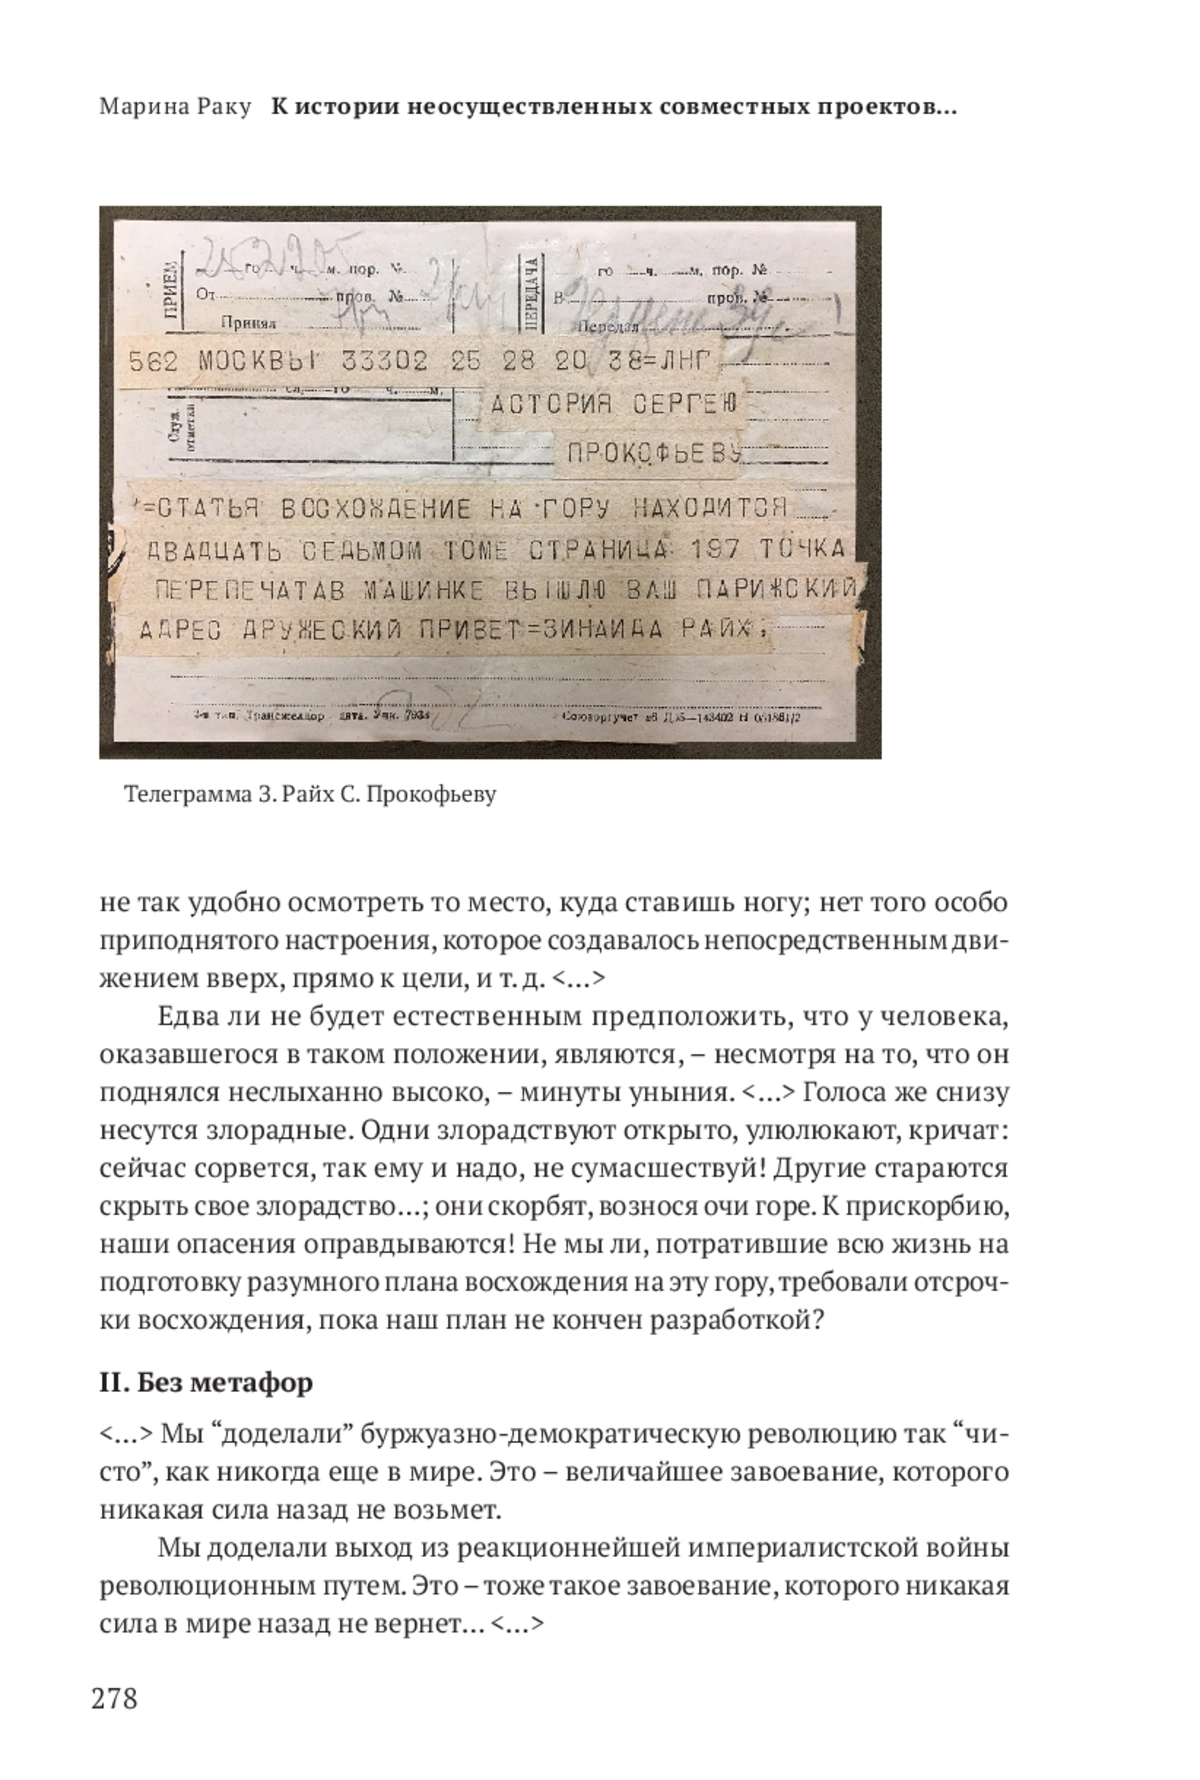 Марина Раку К истории неосуществленных совместных проектов...
ПРИЕМ
го ч. м. пор. №
От пров. №
Принял
ПЕРЕДАЧА
го ч. м. пор. №
В пров. №
Передал
562 МОСКВЫ 33302 25 28 20 38=ЛНГ
го ч. м.
АСТОРИЯ СЕРГЕЮ
Служ. отметки
ПРОКОФЬЕВУ
=СТАТЬЯ ВОСХОЖДЕНИЕ НА ГОРУ НАХОДИТСЯ
ДВАДЦАТЬ СЕДЬМОМ ТОМЕ СТРАНИЦА 197 ТОЧКА
ПЕРЕПЕЧАТАВ МАШИНКЕ ВЫШЛЮ ВАШ ПАРИЖСКИЙ
АДРЕС ДРУЖЕСКИЙ ПРИВЕТ=ЗИНАИДА РАЙХ.
2-я тип. Трансжелдор
Союзоргучет
Телеграмма З. Райх С. Прокофьеву
не так удобно осмотреть то место, куда ставишь ногу; нет того особо
приподнятого настроения, которое создавалось непосредственным дви-
жением вверх, прямо к цели, и т. д. <...>
Едва ли не будет естественным предположить, что у человека,
оказавшегося в таком положении, являются, – несмотря на то, что он
поднялся неслыханно высоко, – минуты уныния. <...> Голоса же снизу
несутся злорадные. Одни злорадствуют открыто, улюлюкают, кричат:
сейчас сорвется, так ему и надо, не сумасшествуй! Другие стараются
скрыть свое злорадство...; они скорбят, вознося очи горе. К прискорбию,
наши опасения оправдываются! Не мы ли, потратившие всю жизнь на
подготовку разумного плана восхождения на эту гору, требовали отсроч-
ки восхождения, пока наш план не кончен разработкой?
II. Без метафор
<...> Мы “доделали” буржуазно-демократическую революцию так “чи-
сто”, как никогда еще в мире. Это – величайшее завоевание, которого
никакая сила назад не возьмет.
Мы доделали выход из реакционнейшей империалистской войны
революционным путем. Это – тоже такое завоевание, которого никакая
сила в мире назад не вернет... <...>
278